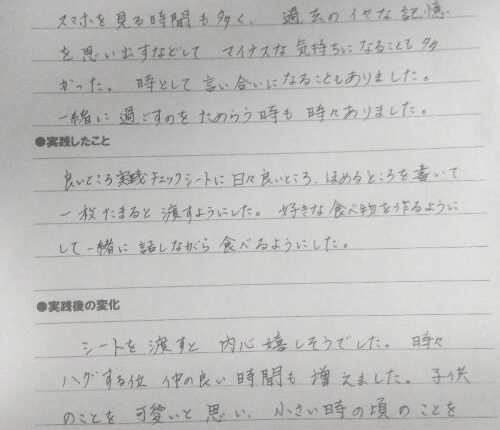 スマホを見る時間も多く、過去のイヤな記憶
を思い出すなどして マイナスな気持ちになることも多
かった。時として言い合いになることもありました。
一緒に過ごすのをためらう時も時々ありました。
●実践したこと
良いところ実践チェックシートに日々良いところ、ほめるところを書いて
一枚たまると渡すようにした。好きな食べ物を作るように
して一緒に話しながら食べるようにした。
●実践後の変化
シートを渡すと内心嬉しそうでした。時々
ハグする位仲の良い時間も増えました。子供
のことを可愛いと思い、小さい時の頃のことを